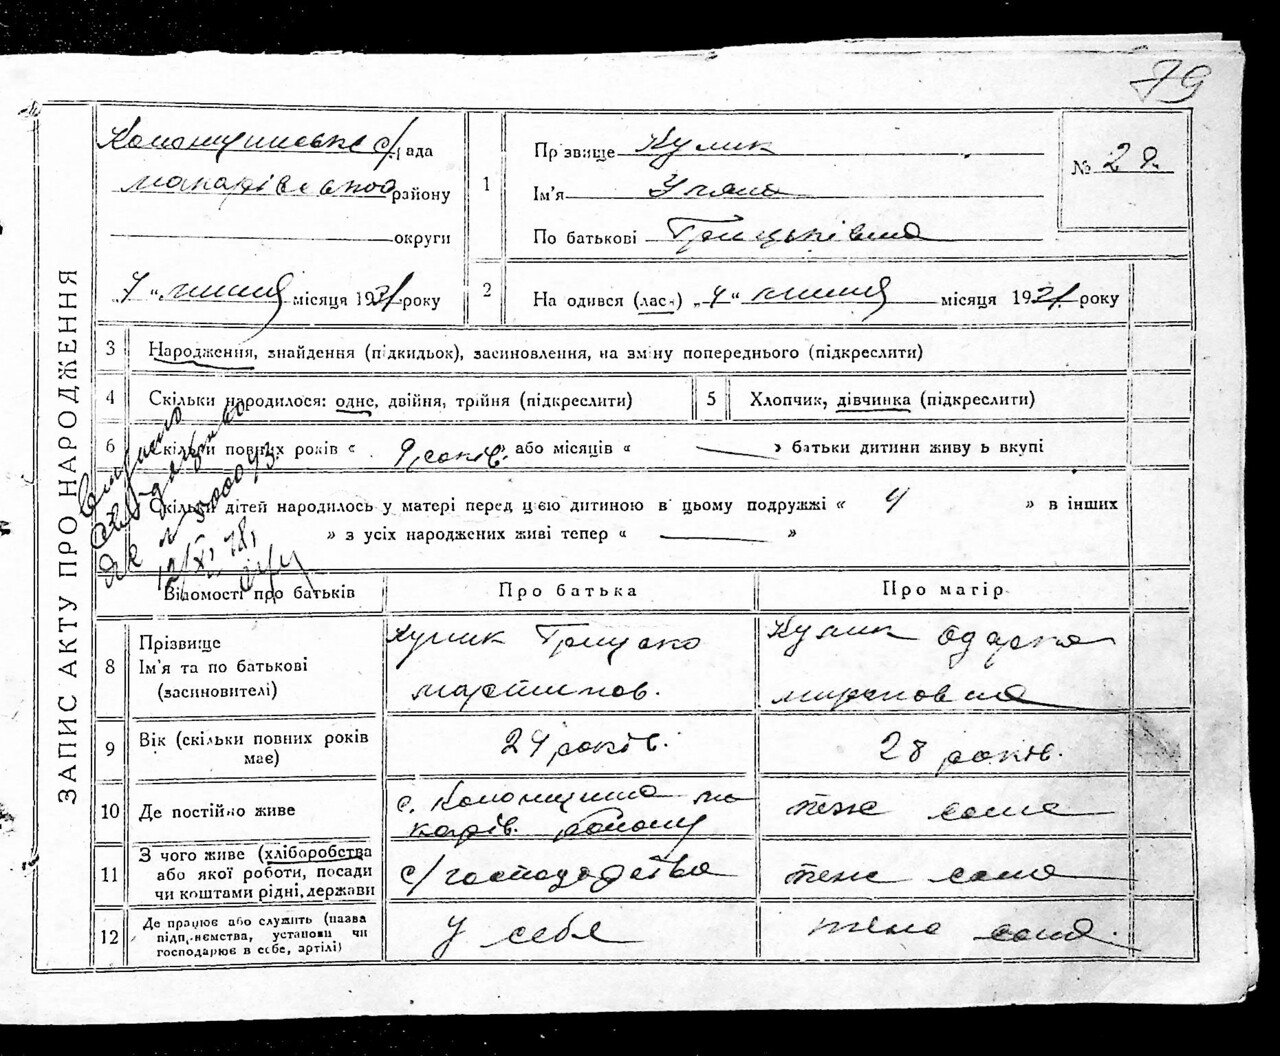 79
ЗАПИС АКТУ ПРО НАРОДЖЕННЯ
Колонщинське с/рада
макарівського району
округи
"7" липня місяця 1931 року
1
Прізвище Кулик
Ім'я Уляна
По батькові Грицьківна
№ 28.
2 На одився (лась) "4" липня місяця 1931 року
3 Народження, знайдення (підкидьок), засиновлення, на зміну попереднього (підкреслити)
4 Скільки народилося: одне, двійня, трійня (підкреслити)
5 Хлопчик, дівчинка (підкреслити)
6 Скільки повних років « 9 років. » або місяців « — » батьки дитини живу ь вкупі
Скільки дітей народилось у матері перед цією дитиною в цьому подружжі « 4 » в інших
» з усіх народжених живі тепер « — »
Видано
свідоцтво
№ 500093
12/XI 78,
Відомості про батьків
Про батька
Про матір
8 Прізвище
Ім'я та по батькові
(засиновителі)
Кулик Грицько
мартинов.
Кулик Одарка
мироновна
9 Вік (скільки повних років має)
29 років.
28 років.
10 Де постійно живе
с. Колонщина ма
карів. району
теж сама
11 З чого живе (хліборобства
або якої роботи, посади
чи коштами рідні, держави
с/господарства
теж сама
12 Де працює або служить (назва
підприємства, установи чи
господарює в себе, артілі)
У себе
тежа сама.